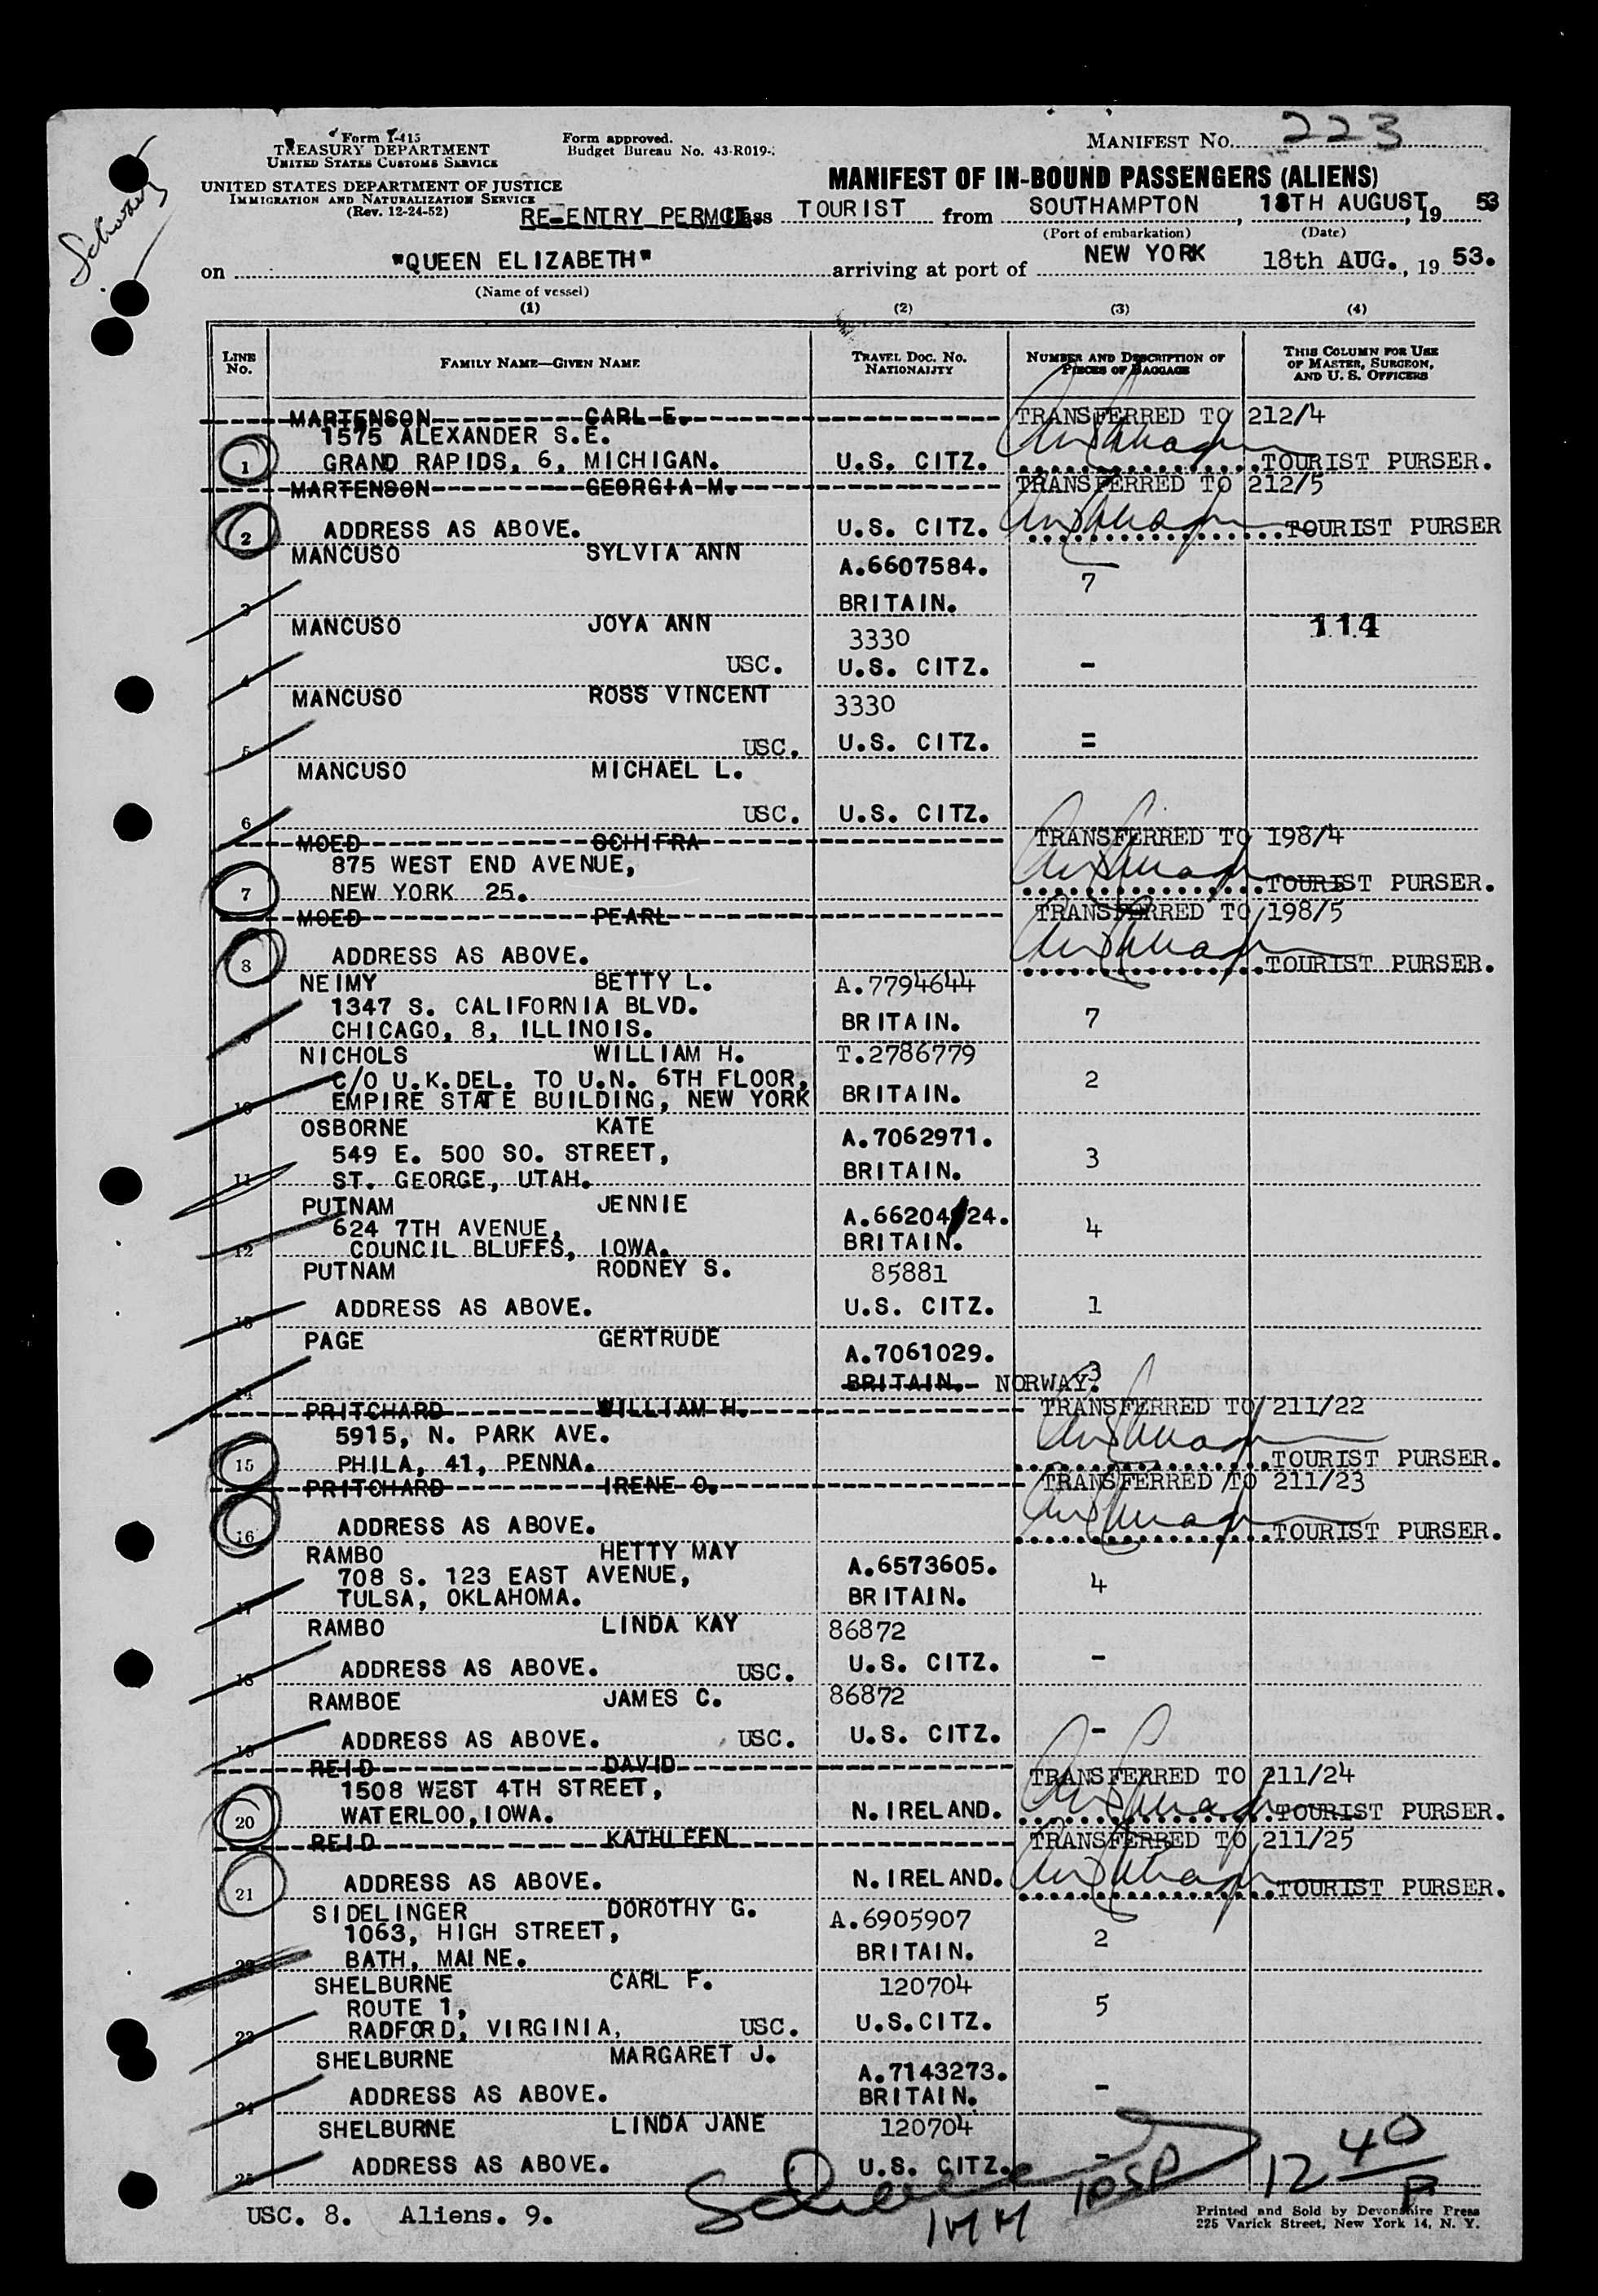 Form I-415
TREASURY DEPARTMENT
UNITED STATES CUSTOMS SERVICE
Form approved.
Budget Bureau No. 43-R019-
MANIFEST NO. 223
UNITED STATES DEPARTMENT OF JUSTICE
IMMIGRATION AND NATURALIZATION SERVICE
(Rev. 12-24-52)
MANIFEST OF IN-BOUND PASSENGERS (ALIENS)
RE-ENTRY PERMIT Class TOURIST from SOUTHAMPTON, 18TH AUGUST, 19 53
(Port of embarkation) (Date)
on "QUEEN ELIZABETH" arriving at port of NEW YORK 18th AUG., 19 53.
(Name of vessel)
(1) (2) (3) (4)
LINE NO. FAMILY NAME—GIVEN NAME TRAVEL DOC. NO. NATIONALITY NUMBER AND DESCRIPTION OF PIECES OF BAGGAGE THIS COLUMN FOR USE OF MASTER, SURGEON, AND U. S. OFFICERS
MARTENSON CARL E. TRANSFERRED TO 212/4
1575 ALEXANDER S.E.
1 GRAND RAPIDS, 6, MICHIGAN. U.S. CITZ. TOURIST PURSER.
MARTENSON GEORGIA M. TRANSFERRED TO 212/5
2 ADDRESS AS ABOVE. U.S. CITZ. TOURIST PURSER
MANCUSO SYLVIA ANN A.6607584. 7
3 BRITAIN.
MANCUSO JOYA ANN 3330 114
4 USC. U.S. CITZ. -
MANCUSO ROSS VINCENT 3330
5 USC. U.S. CITZ. =
MANCUSO MICHAEL L.
6 USC. U.S. CITZ.
MOED SCHIFRA TRANSFERRED TO 198/4
875 WEST END AVENUE,
7 NEW YORK 25. TOURIST PURSER.
MOED PEARL TRANSFERRED TO 198/5
8 ADDRESS AS ABOVE. TOURIST PURSER.
NEIMY BETTY L. A.7794644
1347 S. CALIFORNIA BLVD. 7
9 CHICAGO, 8, ILLINOIS. BRITAIN.
NICHOLS WILLIAM H. T.2786779
C/O U.K.DEL. TO U.N. 6TH FLOOR, 2
10 EMPIRE STATE BUILDING, NEW YORK BRITAIN.
OSBORNE KATE A.7062971.
549 E. 500 SO. STREET, 3
11 ST. GEORGE, UTAH. BRITAIN.
PUTNAM JENNIE A.66204 24.
624 7TH AVENUE, 4
12 COUNCIL BLUFFS, IOWA. BRITAIN.
PUTNAM RODNEY S. 85881
13 ADDRESS AS ABOVE. U.S. CITZ. 1
PAGE GERTRUDE A.7061029.
14 BRITAIN. NORWAY. 3
PRITCHARD WILLIAM H. TRANSFERRED TO 211/22
5915, N. PARK AVE.
15 PHILA, 41, PENNA. TOURIST PURSER.
PRITCHARD IRENE O. TRANSFERRED TO 211/23
16 ADDRESS AS ABOVE. TOURIST PURSER.
RAMBO HETTY MAY A.6573605.
708 S. 123 EAST AVENUE, 4
17 TULSA, OKLAHOMA. BRITAIN.
RAMBO LINDA KAY 86872
18 ADDRESS AS ABOVE. USC. U.S. CITZ. -
RAMBOE JAMES C. 86872
19 ADDRESS AS ABOVE. USC. U.S. CITZ. -
REID DAVID TRANSFERRED TO 211/24
1508 WEST 4TH STREET,
20 WATERLOO, IOWA. N. IRELAND. TOURIST PURSER.
REID KATHLEEN TRANSFERRED TO 211/25
21 ADDRESS AS ABOVE. N. IRELAND. TOURIST PURSER.
SIDELINGER DOROTHY G. A.6905907
1063, HIGH STREET, 2
22 BATH, MAINE. BRITAIN.
SHELBURNE CARL F. 120704
ROUTE 1, 5
23 RADFORD, VIRGINIA, USC. U.S.CITZ.
SHELBURNE MARGARET J. A.7143273.
24 ADDRESS AS ABOVE. BRITAIN. -
SHELBURNE LINDA JANE 120704
25 ADDRESS AS ABOVE. U.S. CITZ. -
12 40 P
USC. 8. Aliens. 9.
Printed and Sold by Devonshire Press
225 Varick Street, New York 14, N. Y.